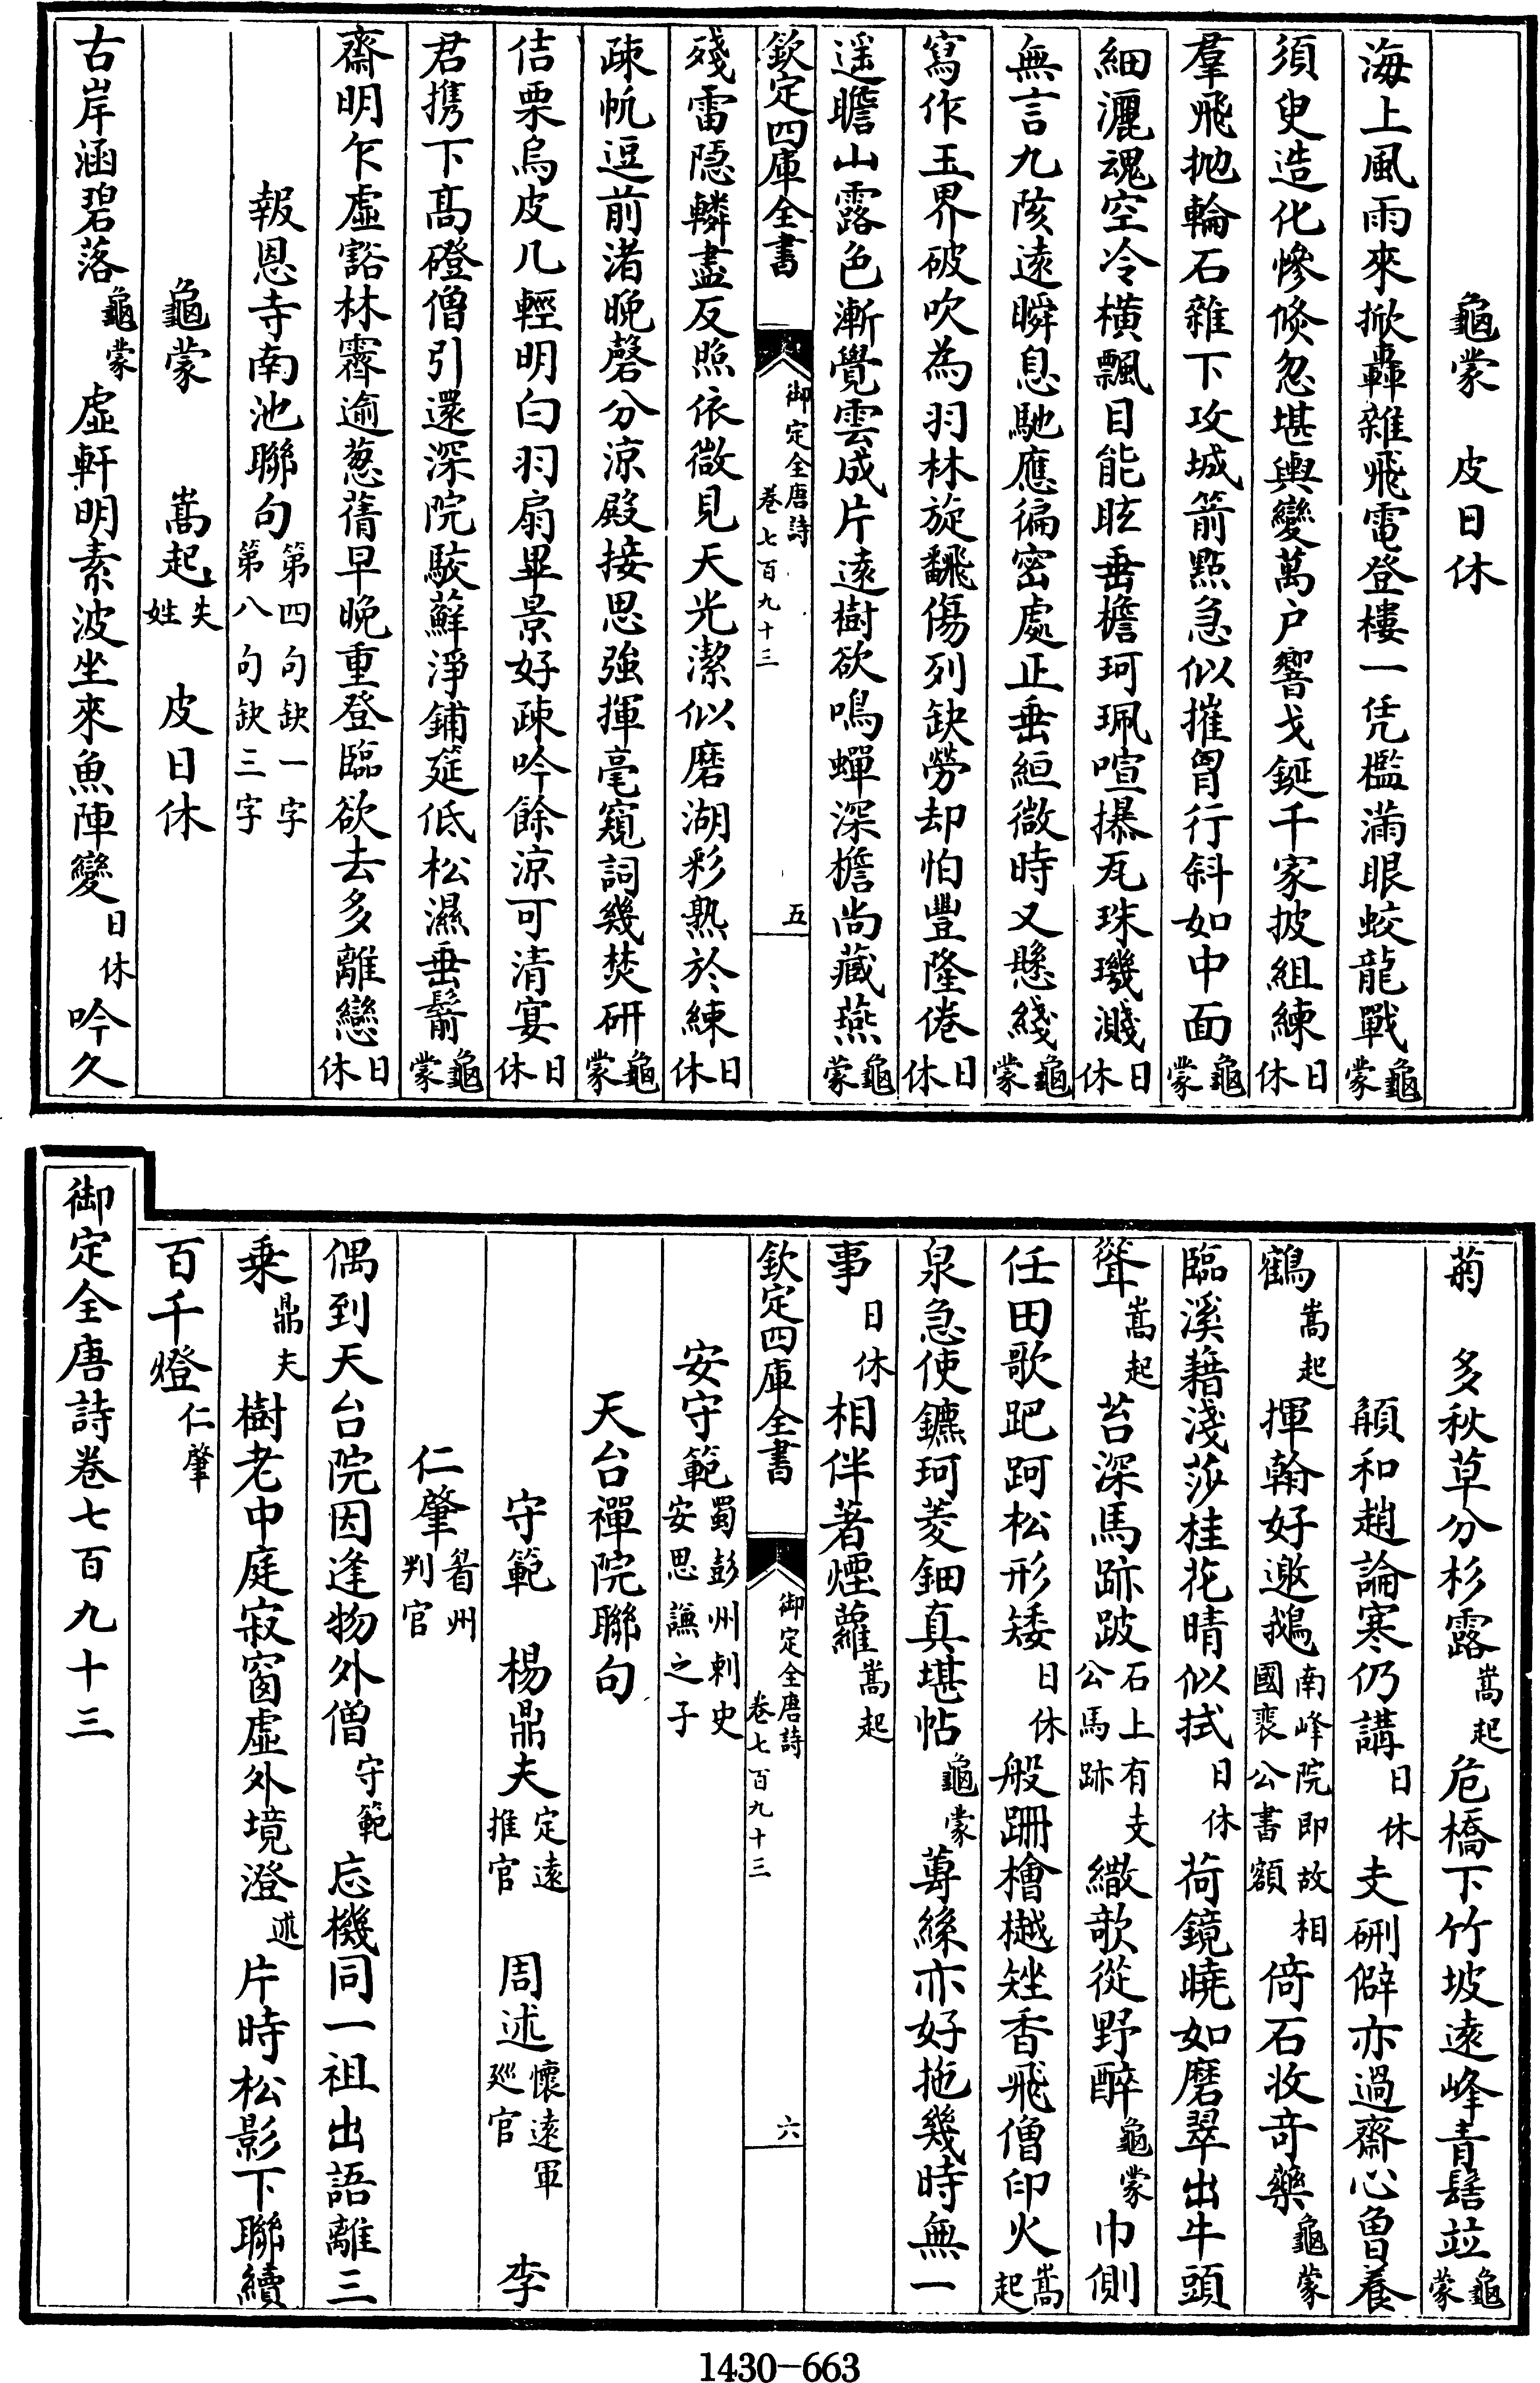 龜蒙　皮日休
海上風雨來掀轟雜飛電登樓一凭檻滿眼蛟龍戰龜蒙
須臾造化慘倐忽堪輿變萬戶響戈鋋千家披組練日休
羣飛抛輪石雜下攻城箭點急似摧胷行斜如中面龜蒙
細灑魂空冷橫飄目能眩垂檐珂珮喧㩧瓦珠璣濺日休
無言九陔遠瞬息馳應徧密處正垂絙微時又懸綫龜蒙
寫作玉界破吹為羽林旋翻傷列缺勞却怕豐隆倦日休
遥瞻山露色漸覺雲成片遠樹欲鳴蟬深檐尚藏燕龜蒙
欽定四庫全書　御定全唐詩卷七百九十三　五
殘雷隱轔盡反照依微見天光潔似磨湖彩熟於練日休
疎帆逗前渚晚磬分涼殿接思強揮毫窺詞幾焚研龜蒙
佶栗烏皮几輕明白羽扇畢景好疎吟餘涼可清宴日休
君携下髙磴僧引還深院駮蘚淨鋪筵低松濕垂鬋龜蒙
齋明乍虛豁林霽逾葱蒨早晚重登臨欲去多離戀日休
報恩寺南池聯句第四句缺一字第八句缺三字
龜蒙　嵩起失姓　皮日休
古岸涵碧落龜蒙虛軒明素波坐來魚陣變日休吟久
菊　多秋草分杉露嵩起危橋下竹坡遠峰青髻竝龜蒙
　　頠和趙論寒仍講日休支硎僻亦過齋心魯養
鶴嵩起揮翰好邀鵝南峰院即故相國裴公書額倚石收奇藥龜蒙
臨溪藉淺莎桂花晴似拭日休荷鏡曉如磨翠出牛頭
聳嵩起苔深馬跡跛石上有支公馬跡繖欹從野醉龜蒙巾側
任田歌跁跒松形矮日休般跚檜樾矬香飛僧印火嵩起
泉急使鑣珂菱鈿真堪帖龜蒙蓴絲亦好拖幾時無一
事日休相伴著煙蘿嵩起
欽定四庫全書　御定全唐詩卷七百九十三　六
安守範蜀彭州刺史安思謙之子
天台禪院聯句
守範　楊鼎夫定遠推官　周述懷遠軍巡官　李
仁肇眷州判官
偶到天台院因逢物外僧守範忘機同一祖出語離三
乗鼎夫樹老中庭寂窗虛外境澄述片時松影下聯續
百千燈仁肇
御定全唐詩卷七百九十三
1430-663